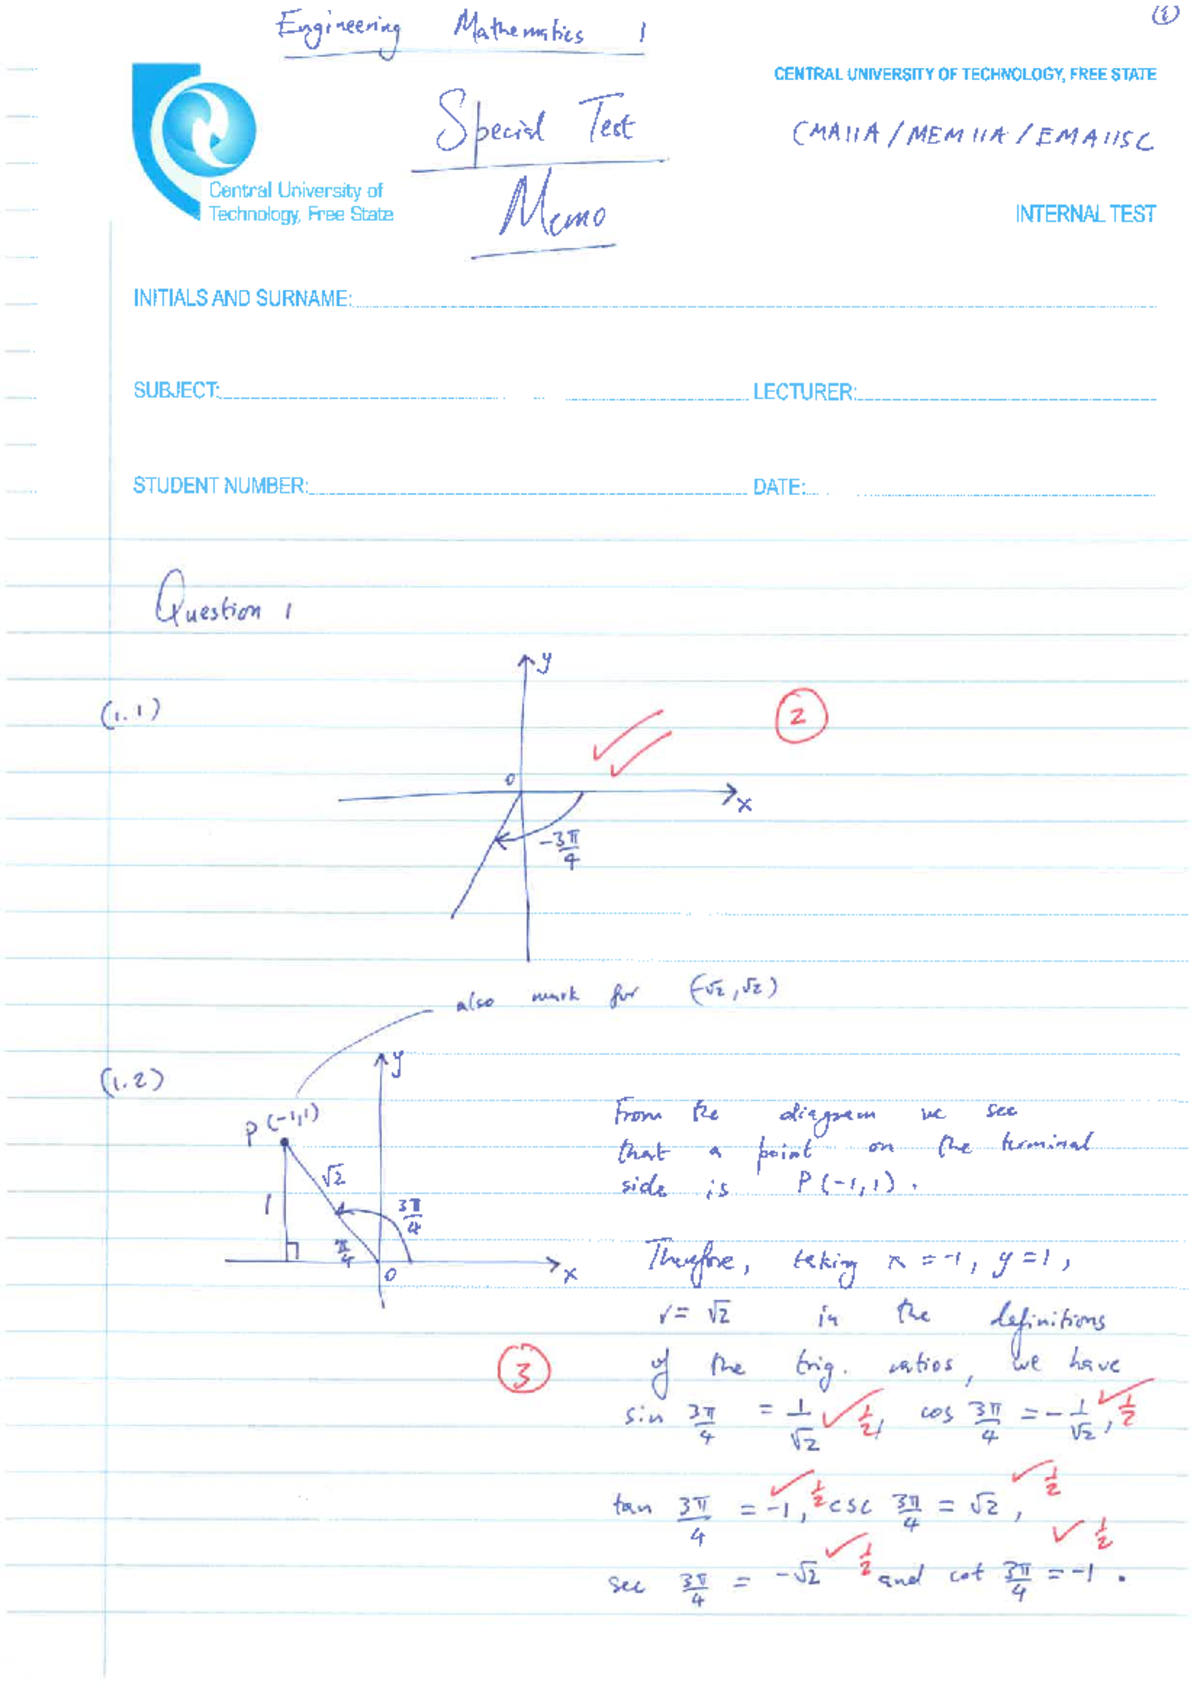 Engineering Mathematics 1
(1)
CENTRAL UNIVERSITY OF TECHNOLOGY, FREE STATE
Special Test
CMA11A / MEM11A / EMA11SC
Central University of
Technology, Free State
Memo
INTERNAL TEST
INITIALS AND SURNAME:
SUBJECT: LECTURER:
STUDENT NUMBER: DATE:
Question 1
(1.1)
y
2
0
x
-3π/4
also mark for (-√2, √2)
(1.2)
y
P(-1,1)
√2
1
3π/4
π/4
0
x
From the diagram we see
that a point on the terminal
side is P(-1,1).
Therefore, taking x = -1, y = 1,
r = √2 in the definitions
3
of the trig. ratios, we have
sin 3π/4 = 1/√2 ✓ 1/2, cos 3π/4 = -1/√2, ✓ 1/2
tan 3π/4 = -1, ✓ 1/2 csc 3π/4 = √2, ✓ 1/2
sec 3π/4 = -√2 ✓ 1/2 and cot 3π/4 = -1. ✓ 1/2